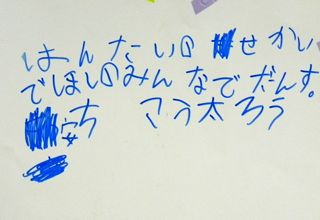 はんたいの せかい
でほしのみんなでだんす。
安ち こう太ろう